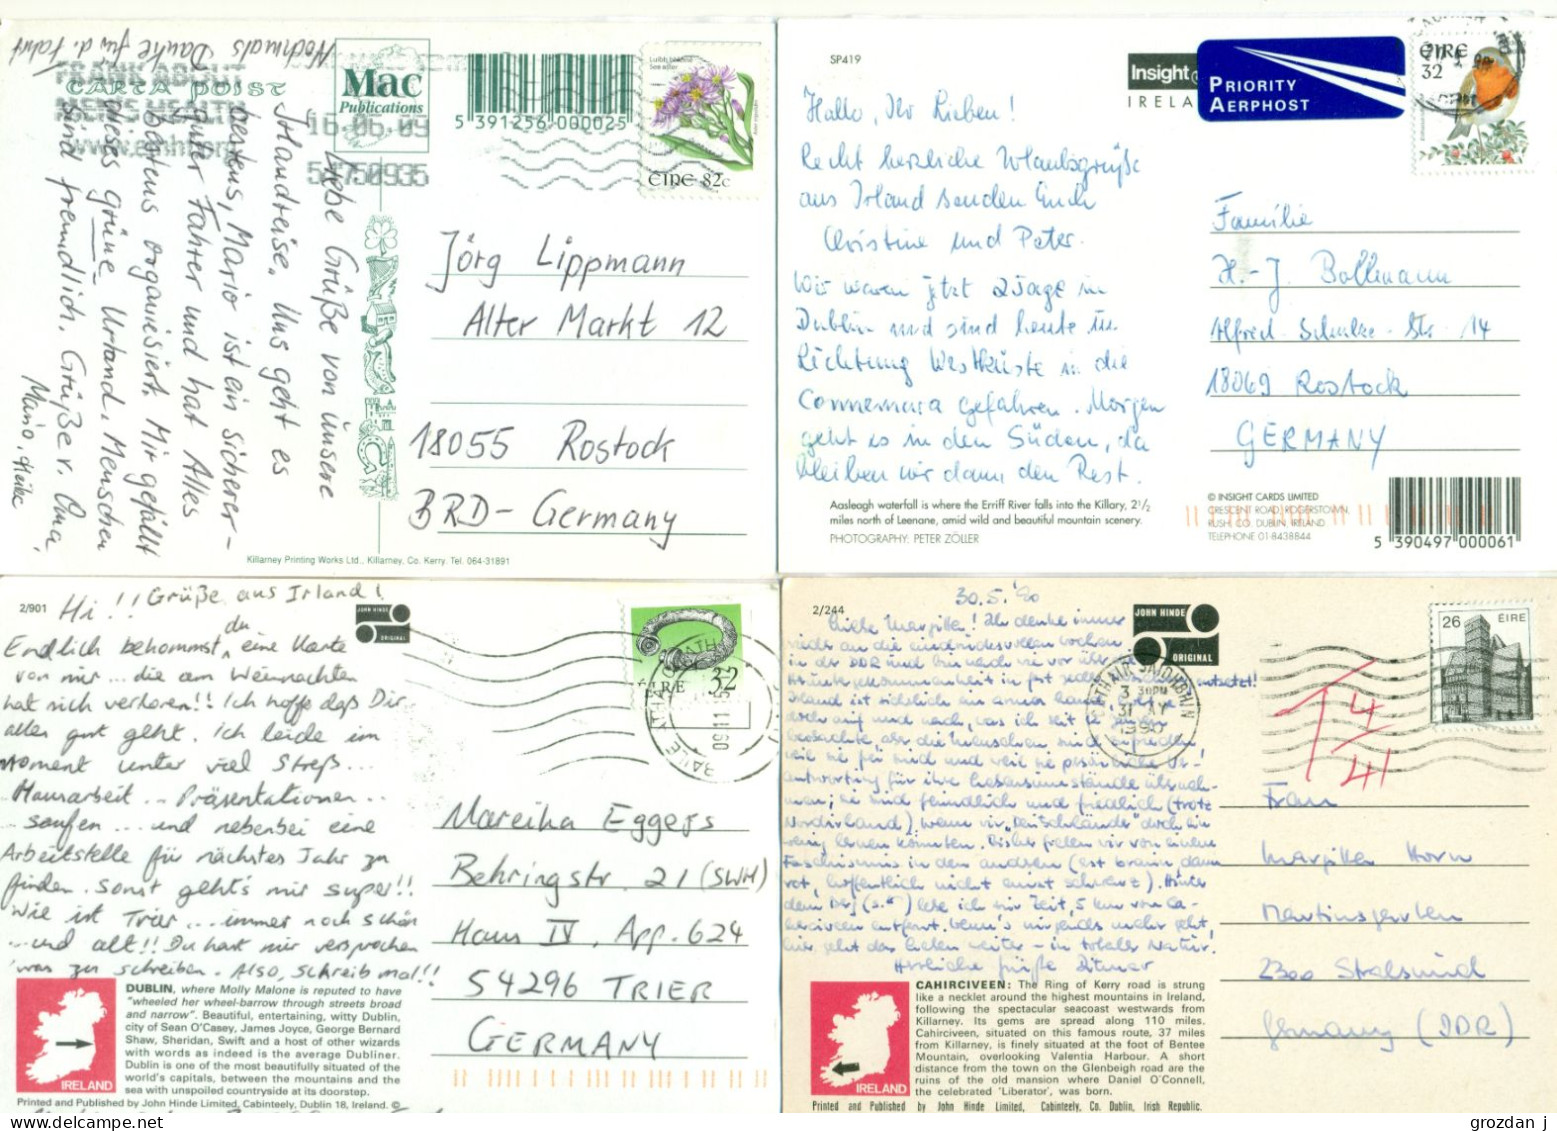 Nochmals Danke für d. Fahrt
CARTA POIST
FRANK ABOUT
MEN'S HEALTH
www.emht.org
Mac
Publications
5 391256 000025
16.06.09
Luibh bléine
Sea aster
ÉIRE 82c
Liebe Grüße von unsere
Irlandreise. Uns geht es
bestens, Mario ist ein sicherer
guter Fahrer und hat Alles
bestens organisiert. Mir gefällt
dieses grüne Urland. Menschen
sind freundlich. Grüße v. Oma,
Mario, Heike
Jörg Lippmann
Alter Markt 12
18055 Rostock
BRD - Germany
Killarney Printing Works Ltd., Killarney, Co. Kerry. Tel. 064-31891
SP419
Insight
IRELAND
PRIORITY
AERPHOST
ÉIRE
32
Hallo, Ihr Lieben!
Recht herzliche Urlaubsgrüße
aus Irland senden Euch
Christine und Peter.
Wir waren jetzt 2 Tage in
Dublin und sind heute in
Richtung Westküste in die
Connemara gefahren. Morgen
geht es in den Süden, da
bleiben wir dann den Rest.
Familie
H.-J. Bollmann
Alfred-Schulze-Str. 14
18069 Rostock
GERMANY
Aasleagh waterfall is where the Erriff River falls into the Killary, 2½
miles north of Leenane, amid wild and beautiful mountain scenery.
PHOTOGRAPHY: PETER ZÖLLER
© INSIGHT CARDS LIMITED
CRESCENT ROAD, ROGERSTOWN,
RUSH, CO. DUBLIN, IRELAND
TELEPHONE 01-8438844
5 390497 000061
2/901
JOHN HINDE
ORIGINAL
Hi!! Grüße aus Irland!
Endlich bekommst du eine Karte
von mir ... die am Weihnachten
hat sich verloren!! Ich hoffe daß Dir
alles gut geht. Ich leide im
Moment unter viel Streß...
Hausarbeit .. Präsentationen...
saufen ... und nebenbei eine
Arbeitstelle für nächstes Jahr zu
finden. Sonst geht's mir super!!
Wie ist Trier ... immer noch schön
... und alt!! Du hast mir versprochen
was zu schreiben. Also, schreib mal!!
ÉIRE 32
09.11.95
Mareika Eggers
Behringstr. 21 (SWH)
Haus IV, App. 624
54296 TRIER
GERMANY
DUBLIN, where Molly Malone is reputed to have
"wheeled her wheel-barrow through streets broad
and narrow". Beautiful, entertaining, witty Dublin,
city of Sean O'Casey, James Joyce, George Bernard
Shaw, Sheridan, Swift and a host of other wizards
with words as indeed is the average Dubliner.
Dublin is one of the most beautifully situated of the
world's capitals, between the mountains and the
sea with unspoiled countryside at its doorstep.
IRELAND
Printed and Published by John Hinde Limited, Cabinteely, Dublin 18, Ireland. ©
2/244
30.5.'90
JOHN HINDE
ORIGINAL
Liebe Margitta! Ich denke immer
wieder an die eindrucksvollen Wochen
in der DDR und bin nach wie vor über
entsetzt!
Irland ist sicherlich ein armes Land
doch auf und nach, was ich seit
beobachte, aber die Menschen sind zufrieden
weil sie frei sind und weil sie persönliche Ver-
antwortung für ihre Lebensumstände überneh-
men; sie sind freundlich und friedlich (trotz
Nordirland), wenn wir "Deutschländer" doch ein
wenig lernen könnten. Bisher fielen wir von einem
Faschismus in den anderen (erst braun dann
rot, hoffentlich nicht erneut schwarz). Hinter
dem Berg (s.*) lebe ich zur Zeit, 5 km von Ca-
herciveen entfernt. Wenn's nirgends mehr geht,
hier geht das Leben weiter - in totaler Natur.
Herzliche Grüße Ditmar
3 30PM
31 MY
1990
26 ÉIRE
Frau
Margitta Horn
Martinsgarten
2300 Stralsund
Germany (DDR)
CAHIRCIVEEN: The Ring of Kerry road is strung
like a necklet around the highest mountains in Ireland,
following the spectacular seacoast westwards from
Killarney. Its gems are spread along 110 miles.
Cahirciveen, situated on this famous route, 37 miles
from Killarney, is finely situated at the foot of Bentee
Mountain, overlooking Valentia Harbour. A short
distance from the town on the Glenbeigh road are the
ruins of the old mansion where Daniel O'Connell,
the celebrated 'Liberator', was born.
IRELAND
Printed and Published by John Hinde Limited, Cabinteely, Co. Dublin, Irish Republic.
grozdan j